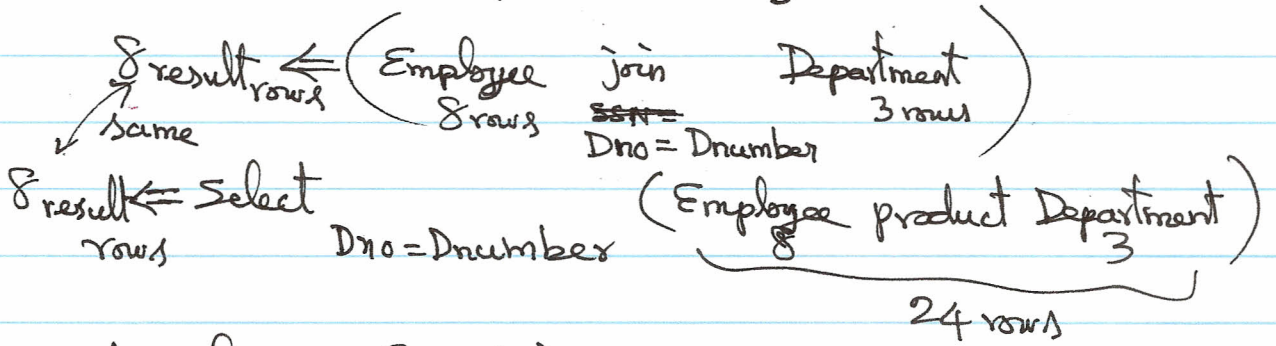 8 result rows ⇐ (Employee join Department)
8 rows 3 rows
same Dno = Dnumber
8 result rows ⇐ Select Dno = Dnumber (Employee product Department)
8 3
24 rows